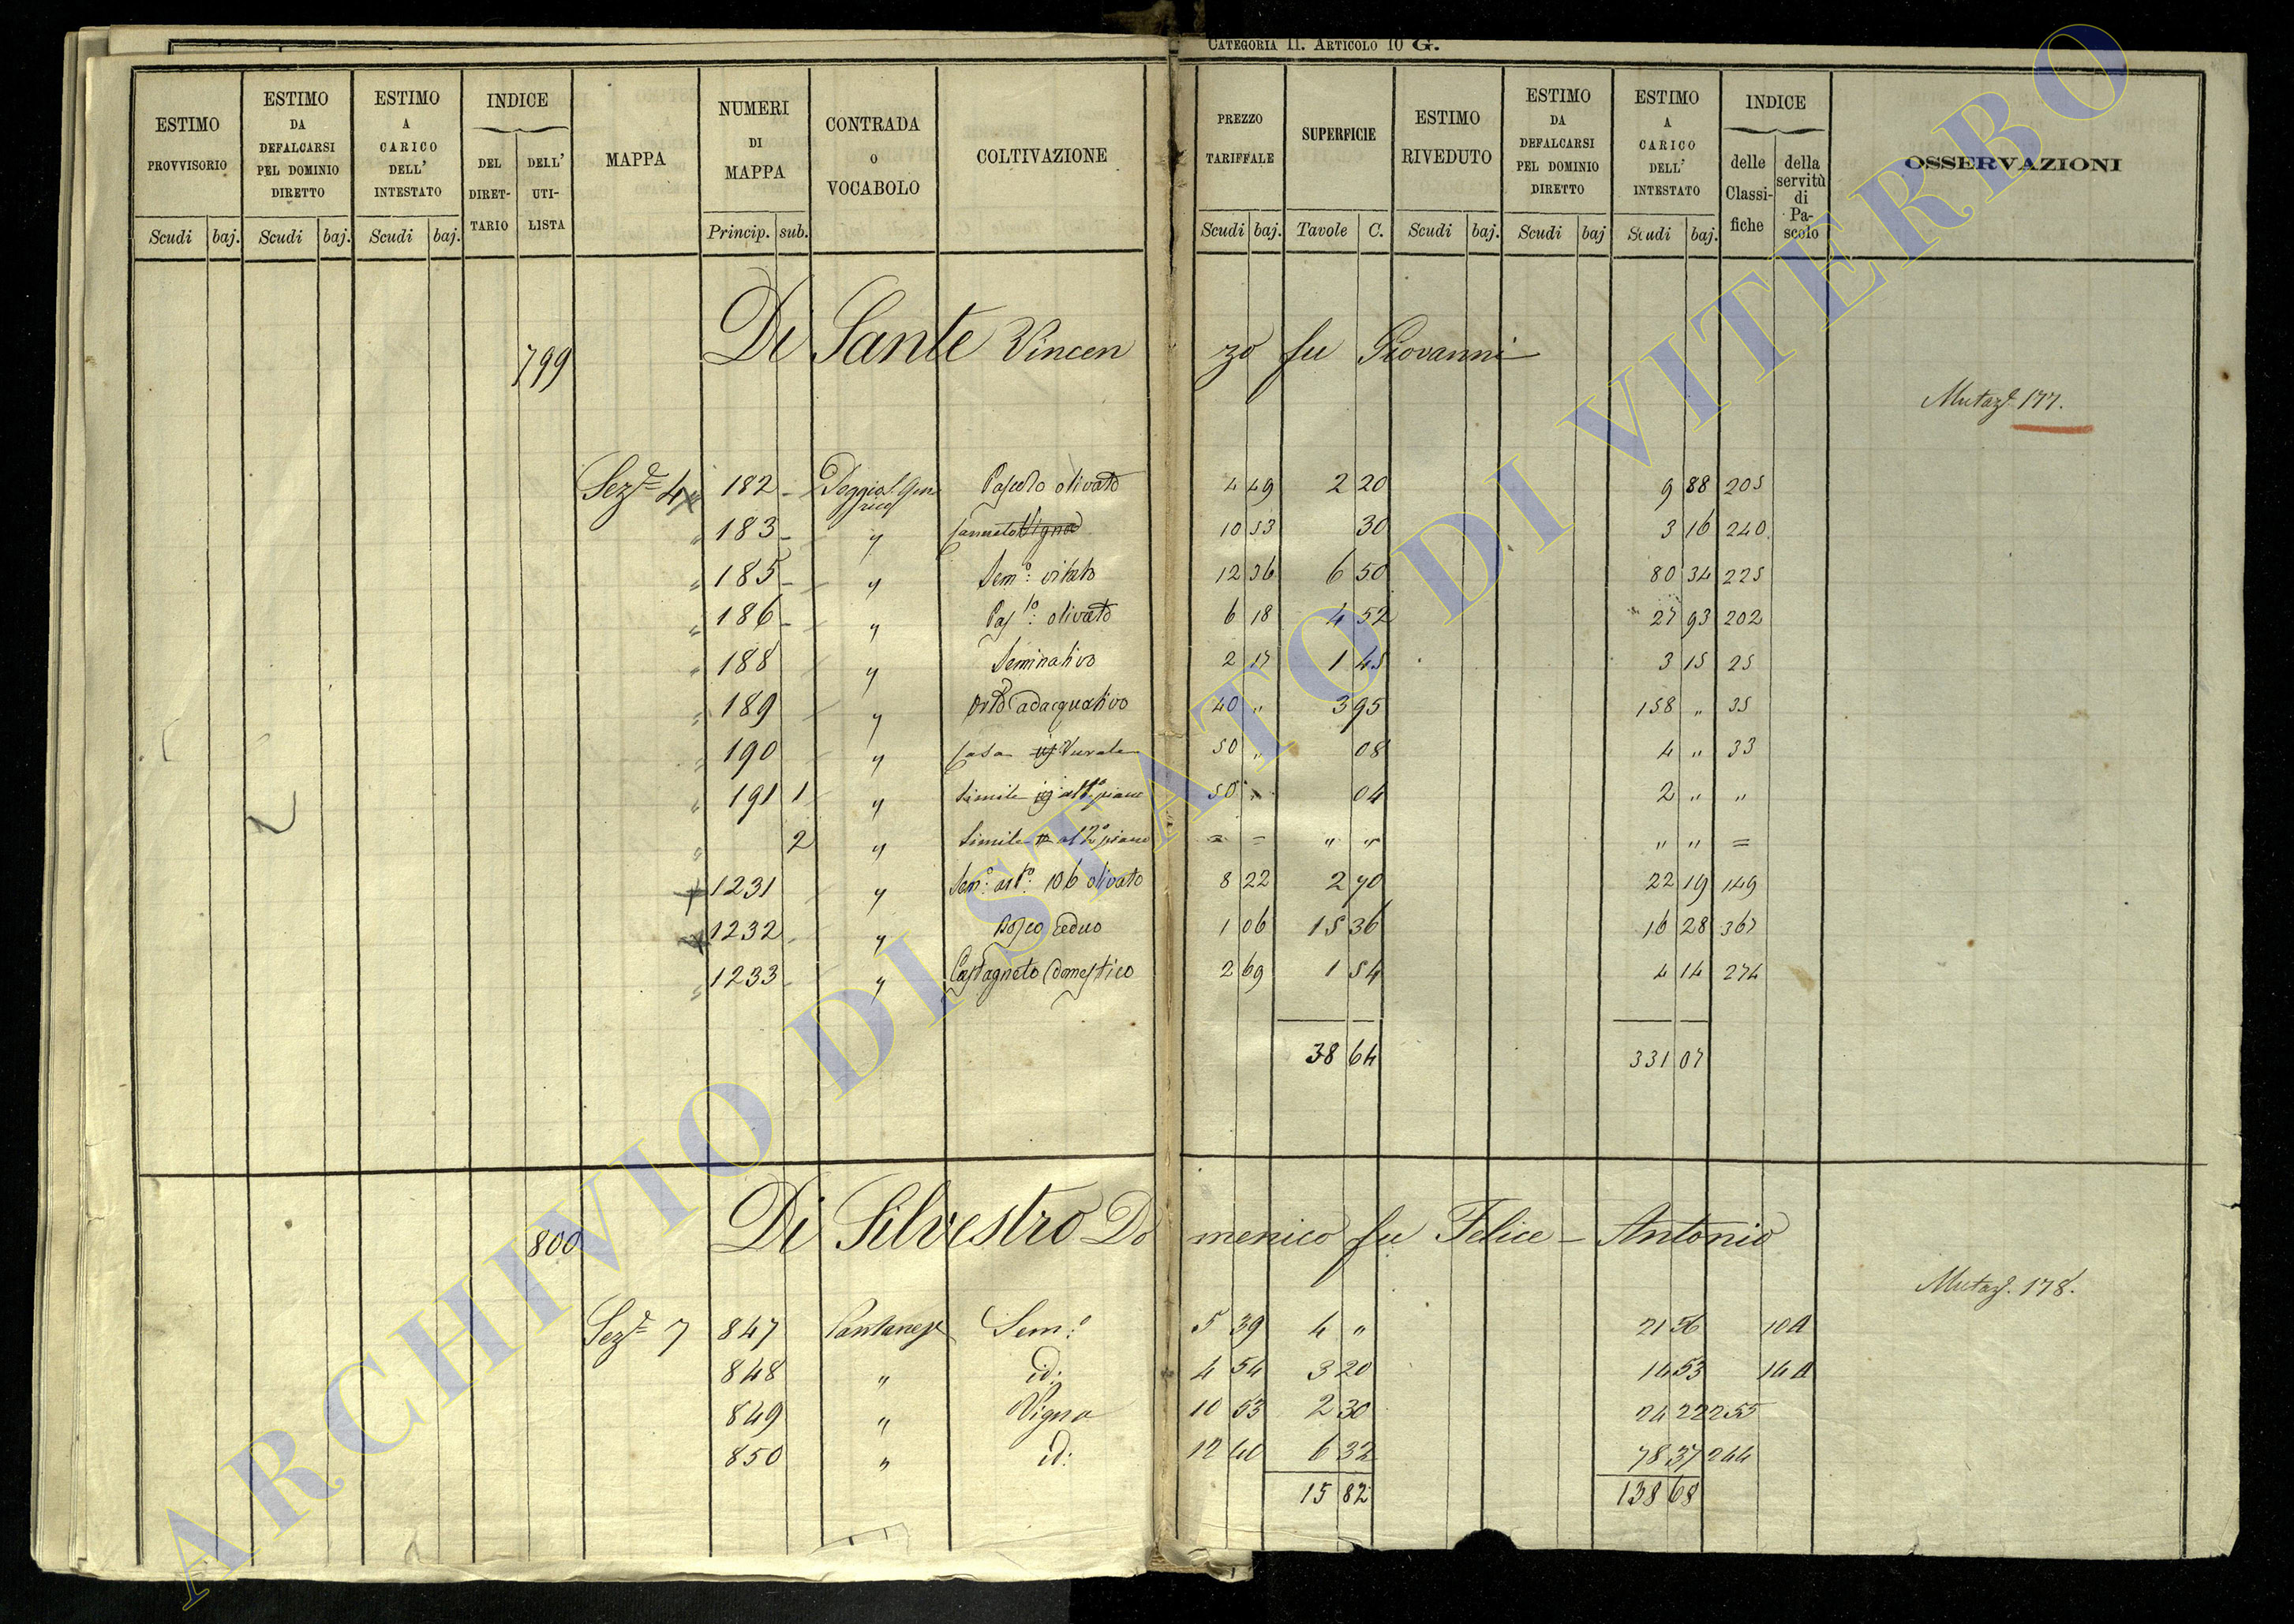 CATEGORIA II. ARTICOLO 10 G.
ESTIMO PROVVISORIO Scudi baj.
ESTIMO DA DEFALCARSI PEL DOMINIO DIRETTO Scudi baj.
ESTIMO A CARICO DELL' INTESTATO Scudi baj.
INDICE DEL DIRET-TARIO DELL' UTI-LISTA
MAPPA
NUMERI DI MAPPA Princip. sub.
CONTRADA O VOCABOLO
COLTIVAZIONE
PREZZO TARIFFALE Scudi baj.
SUPERFICIE Tavole C.
ESTIMO RIVEDUTO Scudi baj.
ESTIMO DA DEFALCARSI PEL DOMINIO DIRETTO Scudi baj
ESTIMO A CARICO DELL' INTESTATO Scudi baj.
INDICE delle Classi-fiche della servitù di Pa-scolo
OSSERVAZIONI
799 Di Sante Vincenzo fu Giovanni
Mutaz.e 177.
Sez.e 4 182 Pascolo olivato 4 49 2 20 9 88 205
" 183 " Canneto Vigna 10 53 30 3 16 240
" 185 " Sem.o: vitato 12 36 6 50 80 34 225
" 186 " Pas.lo: olivato 6 18 4 52 27 93 202
" 188 " Seminativo 2 17 1 45 3 15 25
" 189 " Orto adacquativo 40 " 3 95 158 " 35
" 190 " Casa rurale 50 " 08 4 " 33
" 191 1 " Simile al 1.o piano 50 " 04 2 " "
" 2 " Simile al 2.o piano = = " " " " =
1231 " Sem.o: ast.o: 106 olivato 8 22 2 70 22 19 149
1232 " Bosco ceduo 1 06 15 36 16 28 367
" 1233 " Castagneto domestico 2 69 1 54 4 14 274
38 64 331 07
800 Di Silvestro Domenico fu Felice - Antonio
Mutaz.e 178.
Sez.e 7 847 Pantanese Sem.o 5 39 4 " 21 56 10 A
848 " id: 4 54 3 20 14 53 14 A
849 " Vigna 10 53 2 30 24 22 255
850 " id: 12 40 6 32 78 37 244
15 82 138 68
ARCHIVIO DI STATO DI VITERBO